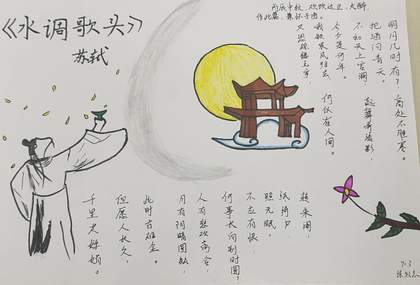 《水调歌头》
苏轼
丙辰中秋，欢饮达旦，大醉，
作此篇，兼怀子由。
明月几时有？
把酒问青天。
不知天上宫阙
今夕是何年。
我欲乘风归去
又恐琼楼玉宇，
高处不胜寒。
起舞弄清影，
何似在人间。
转朱阁，
低绮户，
照无眠。
不应有恨，
何事长向别时圆？
人有悲欢离合，
月有阴晴圆缺，
此时古难全。
但愿人长久，
千里共婵娟。